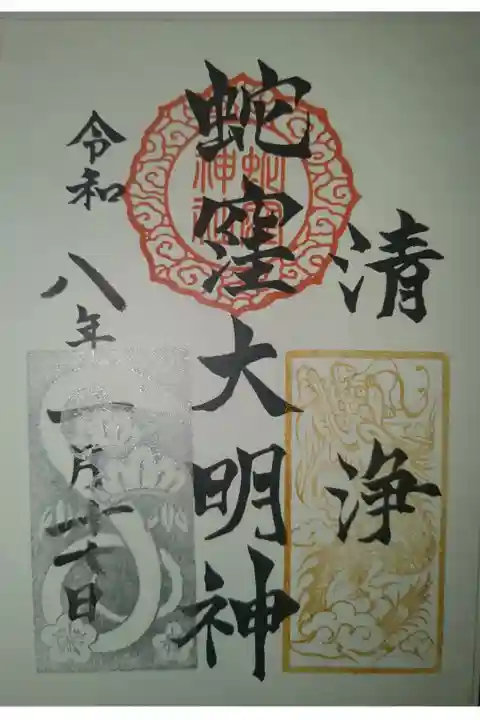 清浄
蛇窪大明神
蛇窪神社
令和八年一月二十日